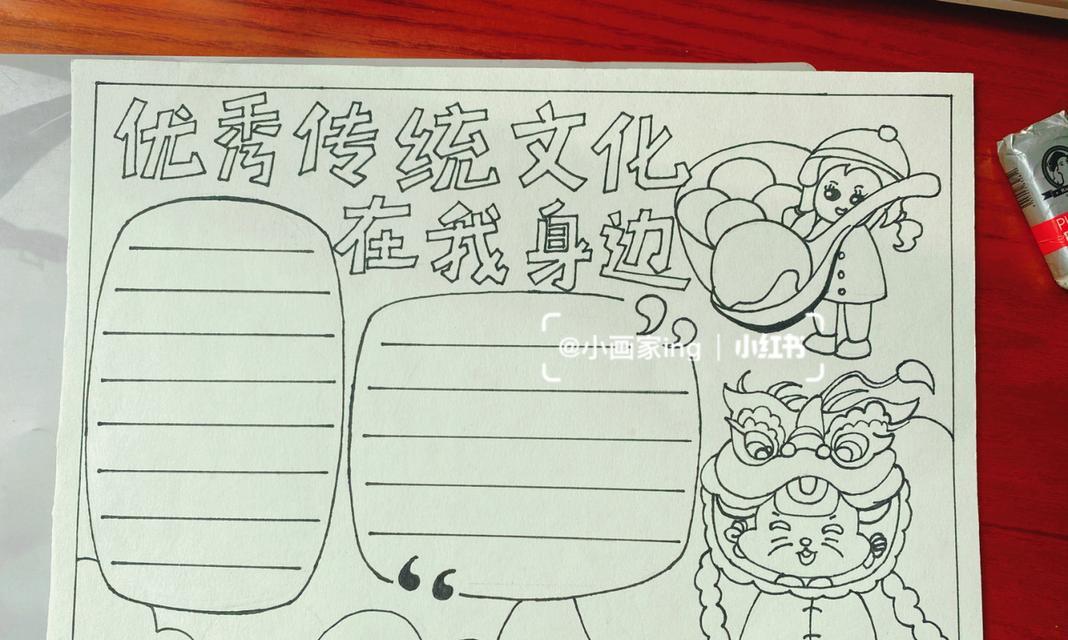 优秀传统文化
在我身边
@小画家ing | 小红书